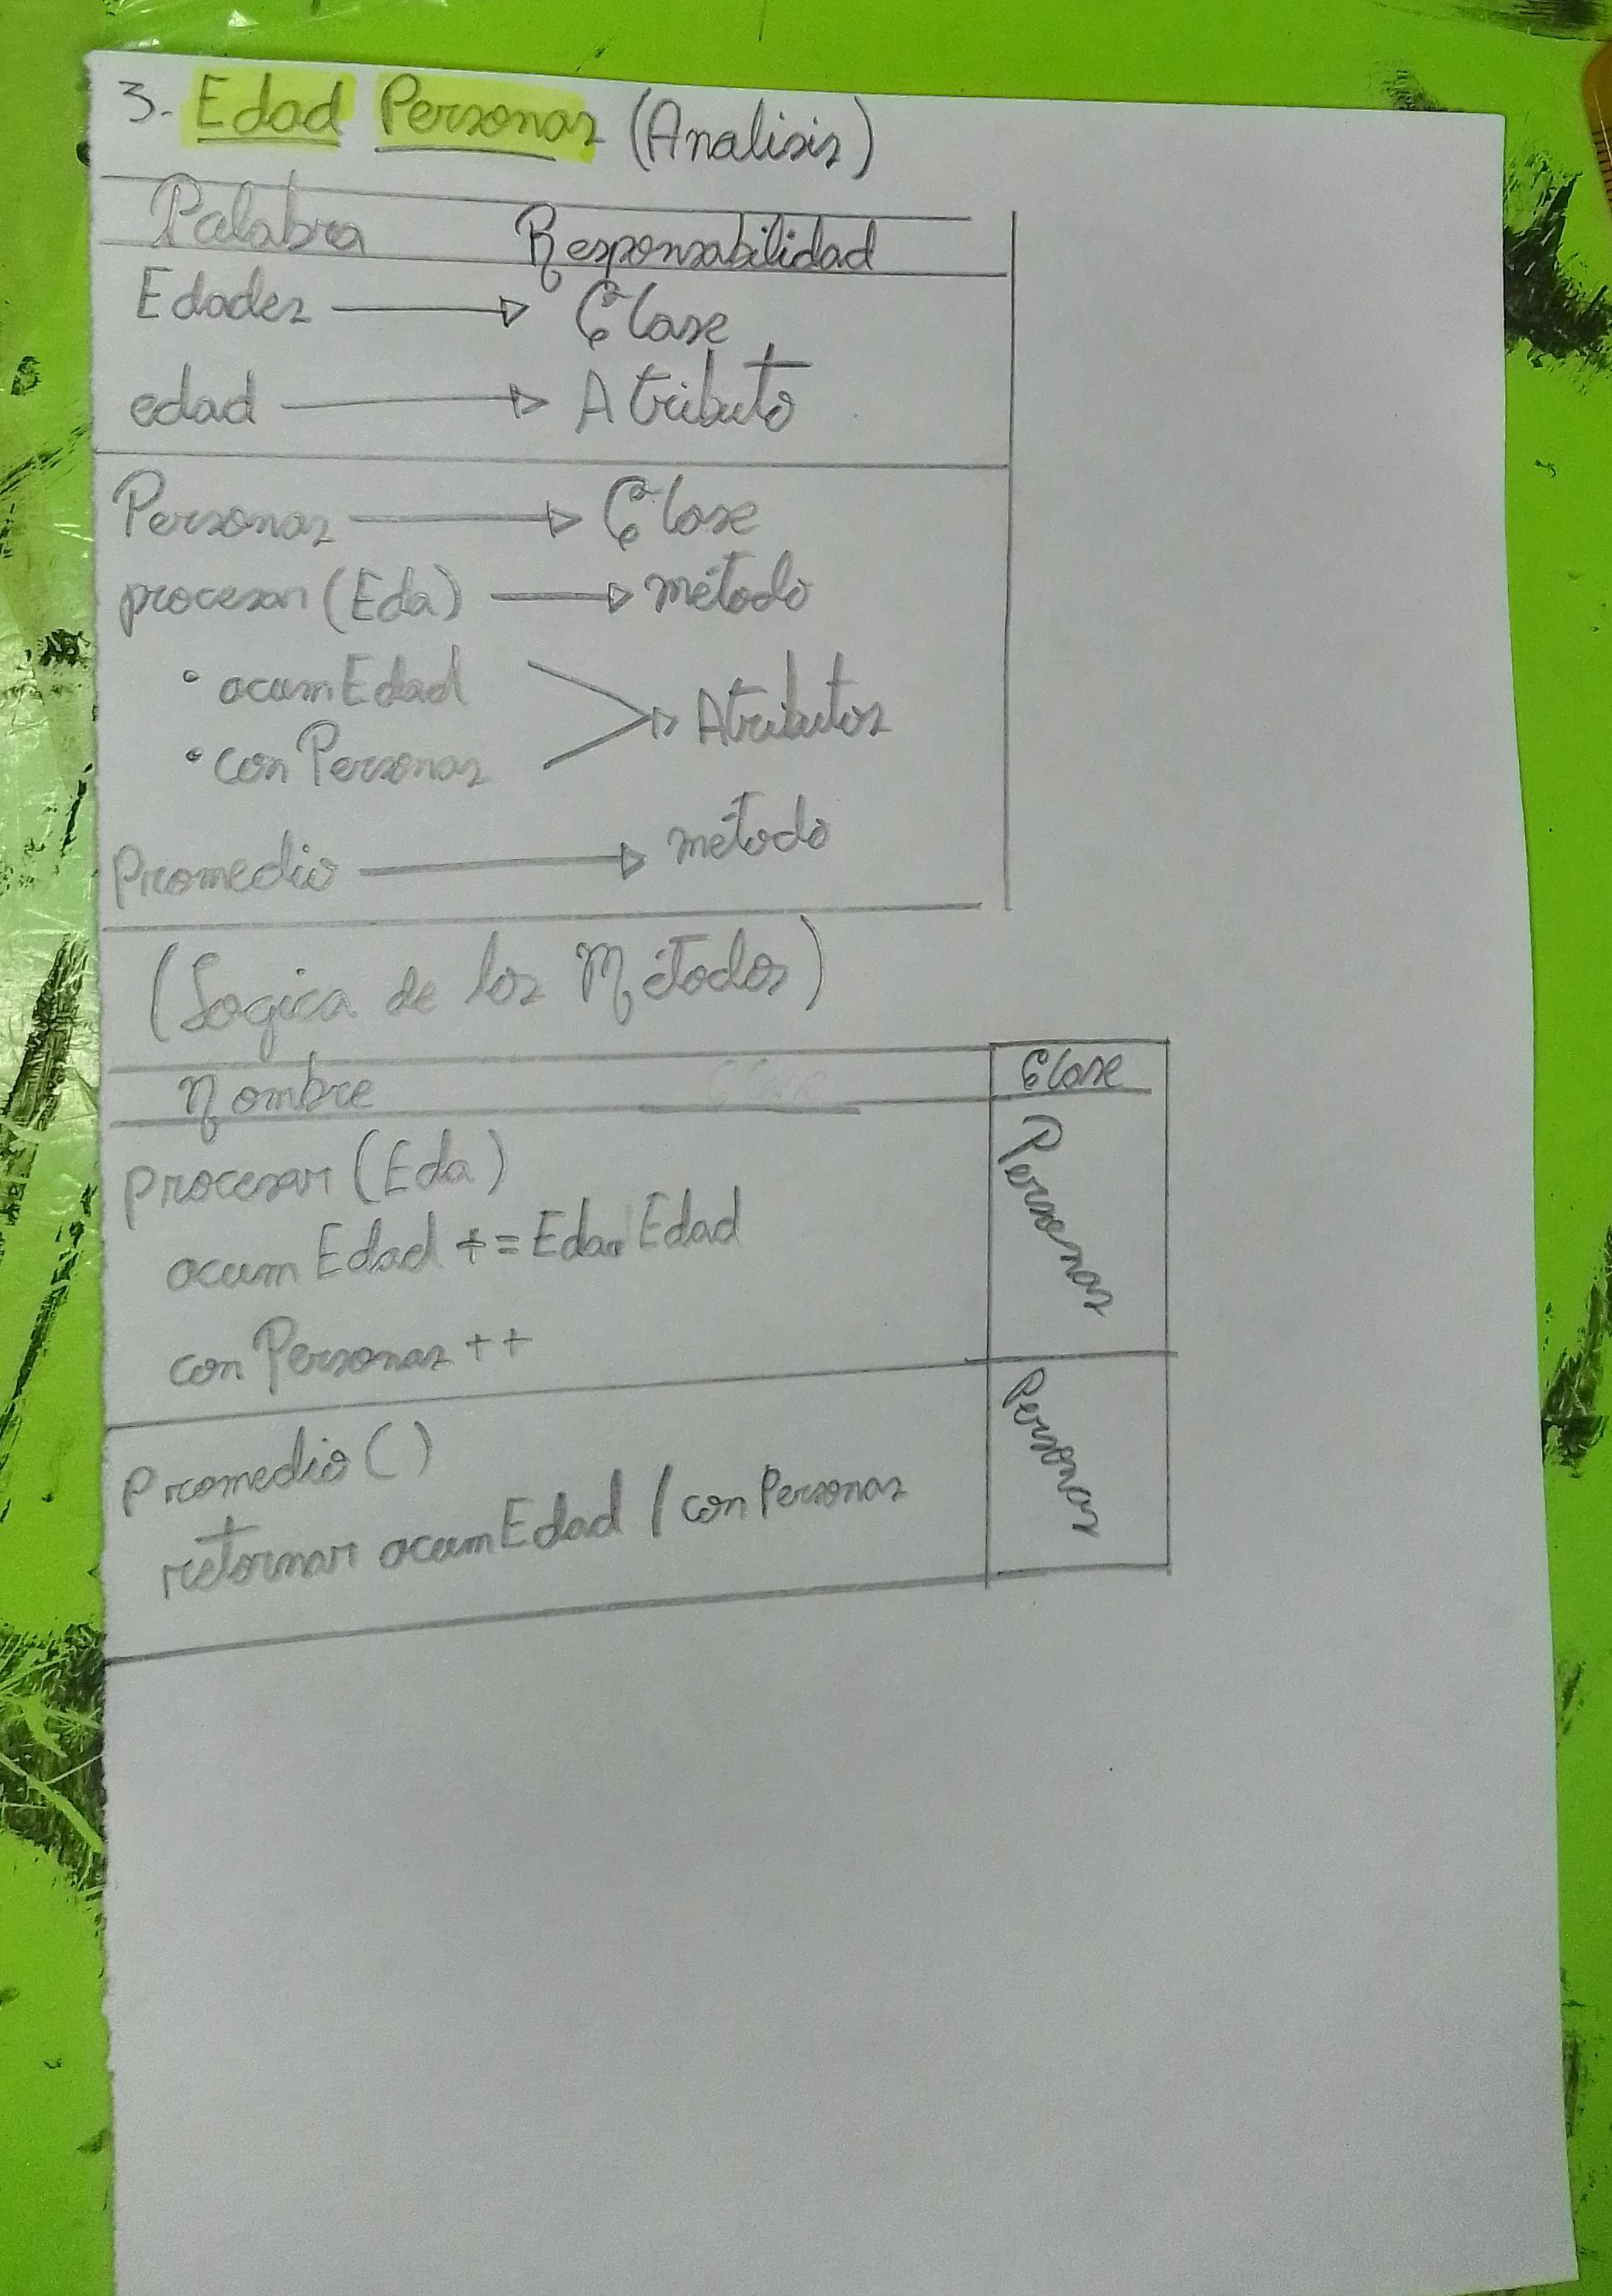 3. Edad Personas (Analisis)
Palabra Responsabilidad
Edades → Clase
edad → Atributo
Personas → Clase
procesar (Eda) → método
• acumEdad
• con Personas
> Atributos
Promedio → método
(Logica de los Métodos)
Nombre Clase
procesar (Eda) Personas
acum Edad += Eda. Edad
con Personas ++
Promedio () Personas
retornar acumEdad / con Personas